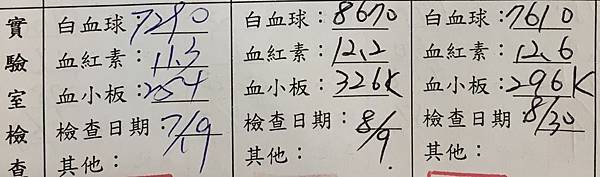 實驗室檢查
白血球：7290
血紅素：11.3
血小板：254
檢查日期：7/19
其他：
白血球：8670
血紅素：12.2
血小板：326K
檢查日期：8/9
其他：
白血球：7610
血紅素：12.6
血小板：296K
檢查日期：8/30
其他：